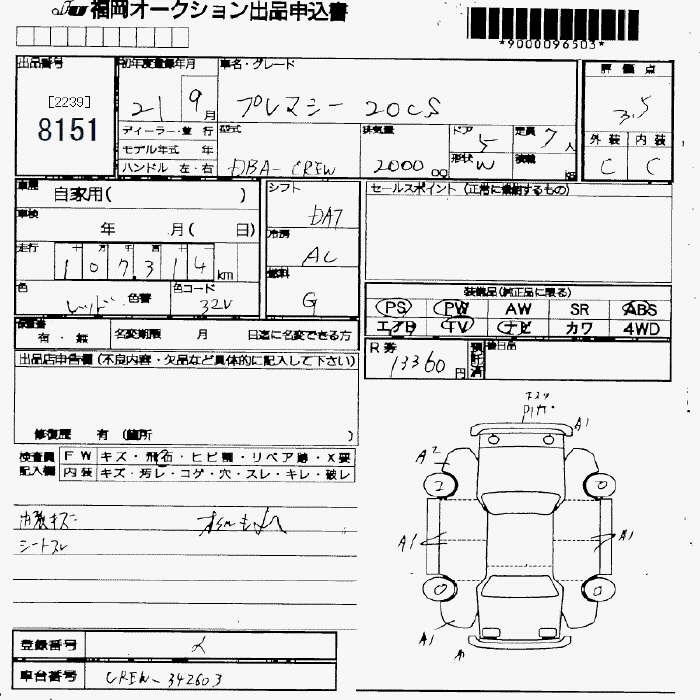 福岡オークション出品申込書
*9000096503*
出品番号 初年度登録年月 車名・グレード 評価点
[2239]
8151
21 9月 プレマシー 20CS 3.5
ディーラー・並行 型式 排気量 ドア 5 定員 7人 外装 内装
モデル年式 年 形状 W 積載 kg
ハンドル 左・右 DBA-CREW 2000 cc C C
車歴 自家用( ) シフト DAT セールスポイント (正常に機能するもの)
車検 年 月( 日) 冷房 AC
走行 107314 km 燃料 G
色 レッド 色替 色コード 32V
装備品(純正品に限る)
PS PW AW SR ABS
エアB TV ナビ カワ 4WD
保証書 有・無 名変期限 月 日迄に名変できる方
R券 13360円 預託済 後日品
出品店申告欄 (不良内容・欠品など具体的に記入して下さい)
修復歴 有 (箇所 )
検査員記入欄 FW キズ・飛石・ヒビ割・リペア跡・X要
内装 キズ・汚レ・コゲ・穴・スレ・キレ・破レ
A1
A2
2 0
内張キズ
シートスレ
A1 A1
0 0
A1 A
登録番号
車台番号 CREW-342603